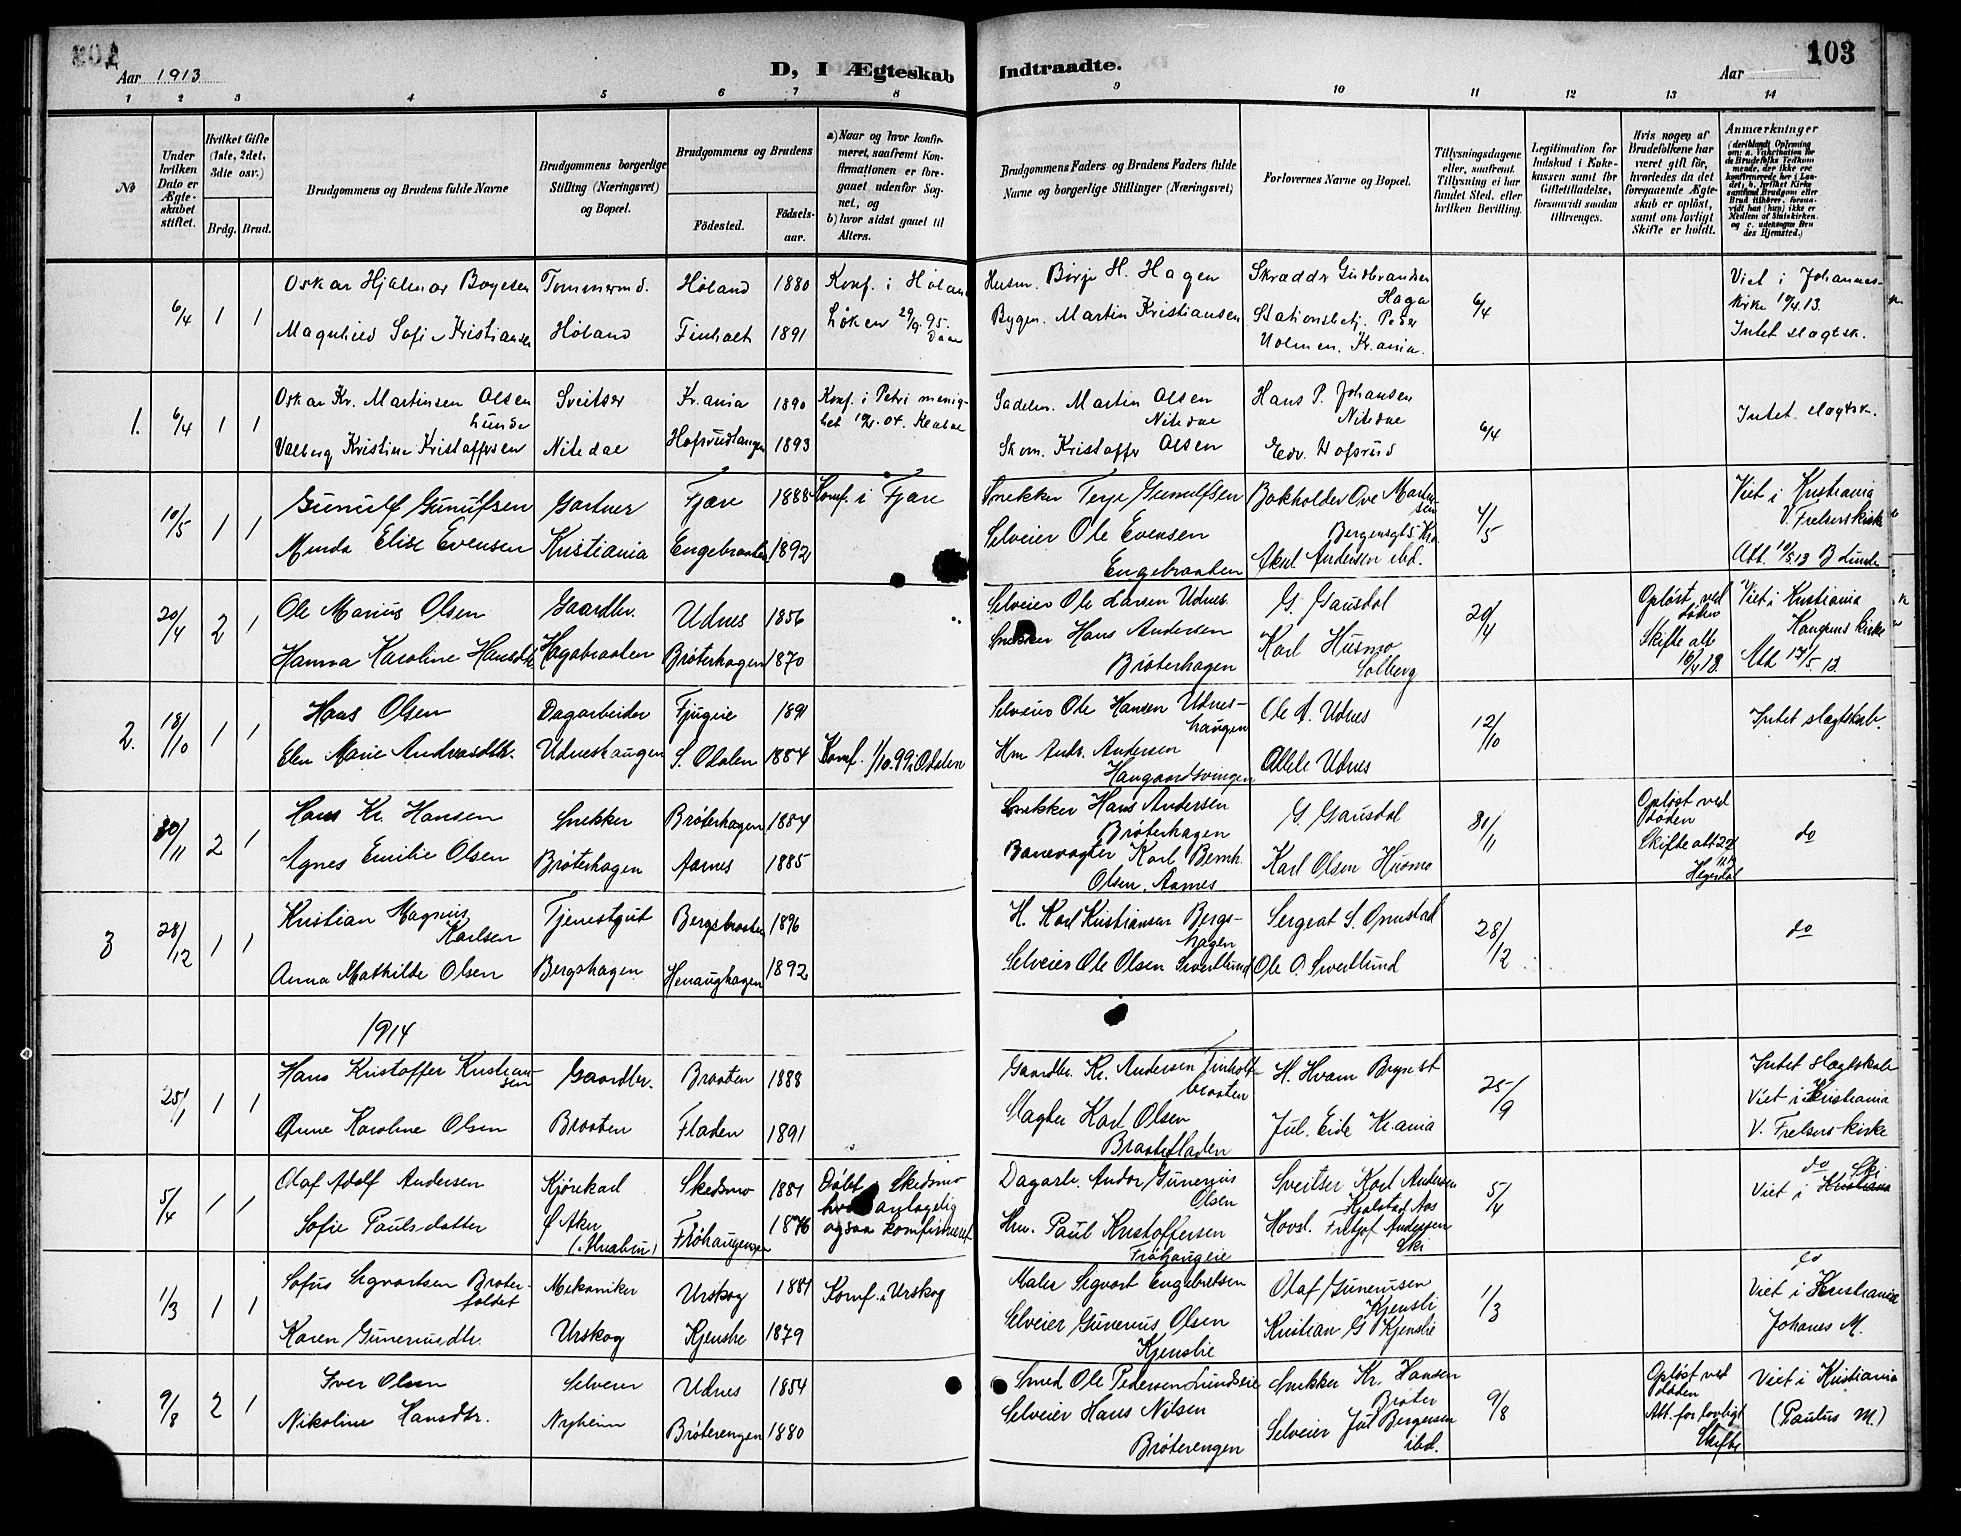 103
Aar 1913
D, I Ægteskab Indtraadte.
Aar
1 2 3 4 5 6 7 8 9 10 11 12 13 14
No
Under hvilken Dato er Ægteskabet stiftet.
Hvilket Gifte (1ste, 2det, 3die osv.)
Brdg. Brud.
Brudgommens og Brudens fulde Navne
Brudgommens borgerlige Stilling (Næringsvei) og Bopæl.
Brudgommens og Brudens
Födested.
Födselsaar.
a) Naar og hvor konfirmeret, saafremt Konfirmationen er foregaaet udenfor Sognet, og
b) hvor sidst gaaet til Alters.
Brudgommens Faders og Brudens Faders fulde Navne og borgerlige Stillinger (Næringsvei)
Forlovernes Navne og Bopæl.
Tillysningsdagene eller, saafremt Tillysning ei har fundet Sted, efter hvilken Bevilling.
Legitimation for Indskud i Enkekassen samt for Giftetilladelse, forsaavidt saadan tiltrænges.
Hvis nogen af Brudefolkene har været gift för, hvorledes da det foregaaende Ægteskab er oplöst, samt om lovligt Skifte er holdt.
Anmærkninger
6/4 1 1
Oskar Hjalmar Boyesen Tømmermd. Høland 1880 Konf. i Høland
Husm. Børge H. Hagen Skrædder Gudbrandsen Haga 6/4 Viet i Johanneskirke 10/4 13.
Magnhild Sofie Kristiansen Høland Finholt 1891 Løken 29/9 95.
Bygm. Martin Kristiansen Stationsbetj. Peder Holmen. Kr.ania. Intet slagtsk.
1. 6/4 1 1
Oskar Kr. Martinsen Olsen Lunde Sveitser Kr.ania 1890 Konf. i Petri menighet
Sadelm. Martin Olsen Nitedal Hans P. Johansen Nitedal 6/4 Intet slagtsk.
Valborg Kristine Kristoffersen Nitedal Hofsrudtangen 1893
Skom. Kristoffer Olsen Edv. Hofsrud
10/5 1 1
Gunulf Gunulfsen Gartner Fjære 1888 Konf. i Fjære
Snekker Terje Gunulfsen Bokholder Ove Martinsen Bergensgt 5. Kra 4/5 Viet i Kristiania V. Frelsers kirke
Minda Elise Evensen Kristiania Engebraaten 1892
Selveier Ole Evensen Engebraaten Aksel Andersen ibd. Att. 10/5 13 B Lunde
20/4 2 1
Ole Marius Olsen Gaardbr. Udnes 1856
Selveier Ole Larsen Udnes. G. Gausdal 20/4 Opløst ved døden Viet i Kristiania Kampens kirke
Hanna Karoline Hansdtr Hagabraaten Brøterhagen 1870
Snekker Hans Andersen Brøterhagen Karl Husmo Solberg Skifte att 16/4 13. Att 14/5 13.
2. 18/10 1 1
Hans Olsen Dagarbeider Fjugeie 1891
Selveier Ole Hansen Udneshaugen Ole A. Udnes 12/10 Intet slagtskab.
Elen Marie Andreasdtr. Udneshaugen S. Odalen 1884 Konf. 1/10.99 i Odalen
Hm Andr. Andersen Haugaardsvingen Udnes
30/11 2 1
Hans Kr. Hansen Snekker Brøterhagen 1884
Snekker Hans Andersen Brøterhagen G. Gausdal Opløst ved døden do
Agnes Emilie Olsen Brøterhagen Aarnes 1885
Banevogter Karl Bernh. Olsen, Aarnes Karl Olsen Husmo Skifte att
3 28/12 1 1
Kristian Magnus Karlsen Tjenestgut Bergsbraaten 1896
H. Karl Kristiansen Bergshagen Sergeat S. Opaustad 28/12 do
Anna Mathilde Olsen Bergshagen Henaughagen 1892
Selveier Ole Olsen Swedlund Ole O. Swedlund
1914
25/1 1 1
Hans Kristoffer Kristiansen Gaardbr. Braaten 1888
Gaardbr. Kr. Andersen Finholtbraaten H. Hvam Brynest 25/9 Intet Slægtskab
Anne Karoline Olsen Braaten Fladen 1891
Slagter Karl Olsen Braatefladen Jul. Eide Kr.ania Viet i Kristiania V. Frelsers kirke
5/4 1 1
Olaf Adolf Andersen Kjørekarl Skedsmo 1881 Døbt i Skedsmo
Dagarb. Andor Gunerius Olsen Sveitser Karl Andersen 5/4 do Viet i Ski Kristiania
Sofie Paulsdatter Ø Aker (Alnabru) Frøhaugengen 1876 hvor antagelig ogsaa konfirmeret
Hm. Paul Kristoffersen Frøhaugeie Hovsl. Fritjof Andersen Ski
1/3 1 1
Sofus Segvartsen Braterfoldet Mekaniker Urskog 1881 Konf. i Urskog
Maler Segvart Engebretsen Olaf Gunerusen Kjensli 1/3 do Viet i Kristiania
Karen Guneriusdtr. Urskog Kjenslie 1879
Selveier Gunerius Olsen Kjenslie Kristian G Kjenslie Johanes M.
9/8 2 1
Iver Olsen Selveier Udnes 1854
Smed Ole Pedersen Lundseie Snekker Kr. Hansen Brøter 9/8 Opløst ved døden Viet i Kristiania
Nikoline Hansdtr. Nyheim Brøterengen 1880
Selveier Hans Nilsen Brøterengen Selveier Jul Bergersen ibd. Att. for lovligt Skifte (Paulus M.)